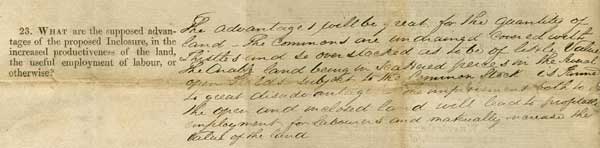 23. WHAT are the supposed advan-
tages of the proposed Inclosure, in the
increased productiveness of the land,
the useful employment of labour, or
otherwise?
The advantages will be great for the quantities of
land – The Commons are undrained Covered with
Thistles and so overstocked as to be of little Value
The Arable land being in Scattered pieces in the
open Subject to the Common Stock is
to great disadvantage improvement both to
the open and inclosed land will lead to profitable
employment for labourers and materially increase the
Value of the land